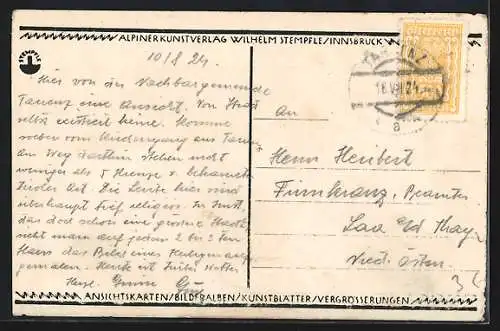 ALPINER KUNSTVERLAG WILHELM STEMPFLE/INNSBRUCK
STEMPFLE
10/8 24.
Hier von der Nachbargemeinde
eine Ansicht. Von
selbst existiert keine. Komme
soeben vom Kirchengang aus
Am Weg dorthin stehen nicht
weniger als 5 Kreuze
Tiroler Art. Die Leute hier sind
überhaupt tief religiös. In Imst,
das doch schon eine größere Stadt,
sieht man auf jedem 2 bis 3ten
Haus das Bild eines Heiligen auf-
gemalen. Heute ist
Herzl. Grüsse
An
Herrn Heribert
Fürnkranz, Beamter
Laa a/d Thaya
Nied. Östen.
ÖSTERREICH
24
a
ANSICHTSKARTEN/BILDERALBEN/KUNSTBLÄTTER/VERGRÖSSERUNGEN